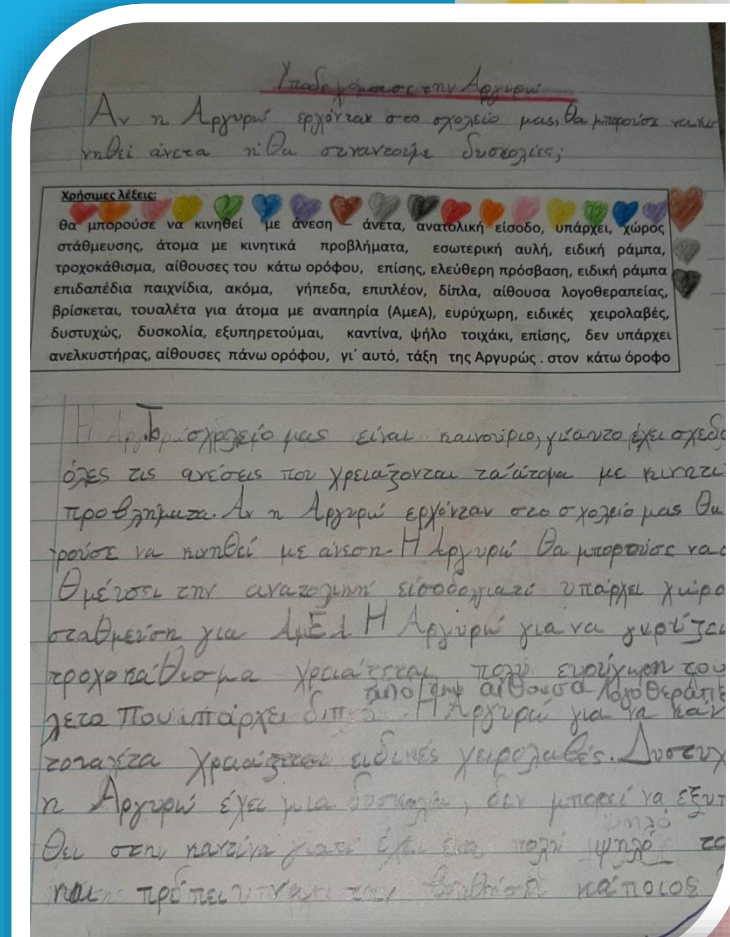 Υποδεχόμαστε την Αργυρώ
Αν η Αργυρώ ερχόνταν στο σχολείο μας, θα μπορούσε να κι
νηθεί άνετα ή θα συναντούμε δυσκολίες;
Χρήσιμες λέξεις:
θα μπορούσε να κινηθεί με άνεση – άνετα, ανατολική είσοδο, υπάρχει, χώρος
στάθμευσης, άτομα με κινητικά προβλήματα, εσωτερική αυλή, ειδική ράμπα,
τροχοκάθισμα, αίθουσες του κάτω ορόφου, επίσης, ελεύθερη πρόσβαση, ειδική ράμπα
επιδαπέδια παιχνίδια, ακόμα, γήπεδα, επιπλέον, δίπλα, αίθουσα λογοθεραπείας,
βρίσκεται, τουαλέτα για άτομα με αναπηρία (ΑμεΑ), ευρύχωρη, ειδικές χειρολαβές,
δυστυχώς, δυσκολία, εξυπηρετούμαι, καντίνα, ψήλο τοιχάκι, επίσης, δεν υπάρχει
ανελκυστήρας, αίθουσες πάνω ορόφου, γι΄ αυτό, τάξη της Αργυρώς . στον κάτω όροφο
Το σχολείο μας είναι καινούριο, γι'αυτο έχει σχεδο
όλες τις ανέσεις που χρειάζονται τα άτομα με κινητι
προβλήματα. Αν η Αργυρώ ερχόνταν στο σχολείο μας θα
ρούσε να κινηθεί με άνεση. Η Αργυρώ θα μπορούσε να
την ανατολική είσοδο γιατί υπάρχει χώρο
σταθμεύση για ΑμΕΑ Η Αργυρώ για να γυρίζει
τροχοκάθισμα χρειάζεται πολύ ευρύχωρη του
από την αίθουσα λογοθεραπε
λετα που υπάρχει διπλα. Η Αργυρώ για να κάν
τουαλέτα χρειάζεται ειδικές χειρολαβές. Δυστυχ
η Αργυρώ έχει μια δυσκολία, δεν μπορεί να εξυπ
ψηλό
θει στην καντίνα γιατί έχει ένα πολύ ψηλό το
και πρέπει να την βοηθήσει κάποιος